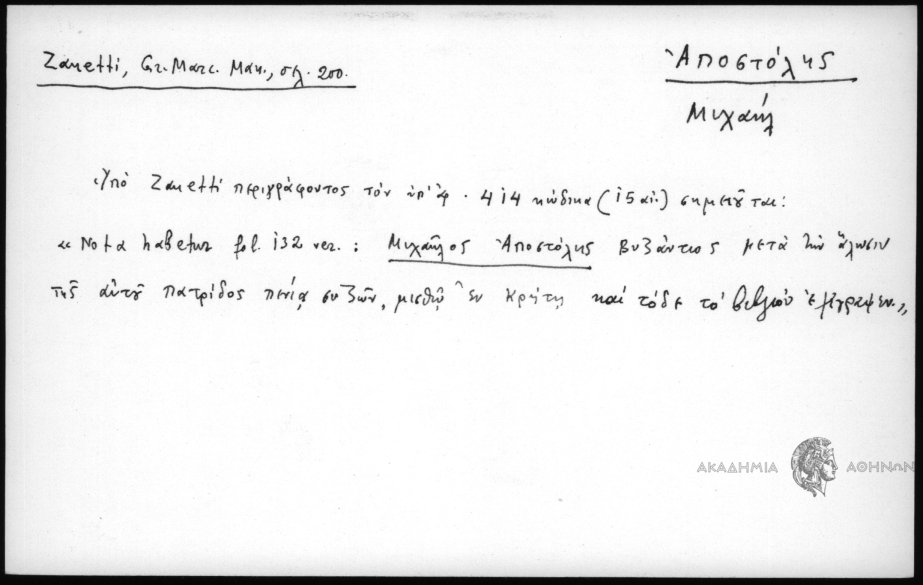 Zanetti, Gr. Marc. Man., σελ. 200.
Ἀποστόλης
Μιχαήλ
Ὑπὸ Zanetti περιγράφοντος τὸν ὑπ' ἀρ. 414 κώδικα (15 αἰ.) σημειοῦται:
« Nota habetur fol. 132 ver. : Μιχαῆλος Ἀποστόλης Βυζάντιος μετὰ τὴν ἅλωσιν
τῆς αὐτοῦ πατρίδος πενίᾳ συζῶν, μισθῷ ἐν Κρήτῃ καὶ τόδε τὸ βιβλίον ἐξέγραψεν.»
ΑΚΑΔΗΜΙΑ ΑΘΗΝΩΝ